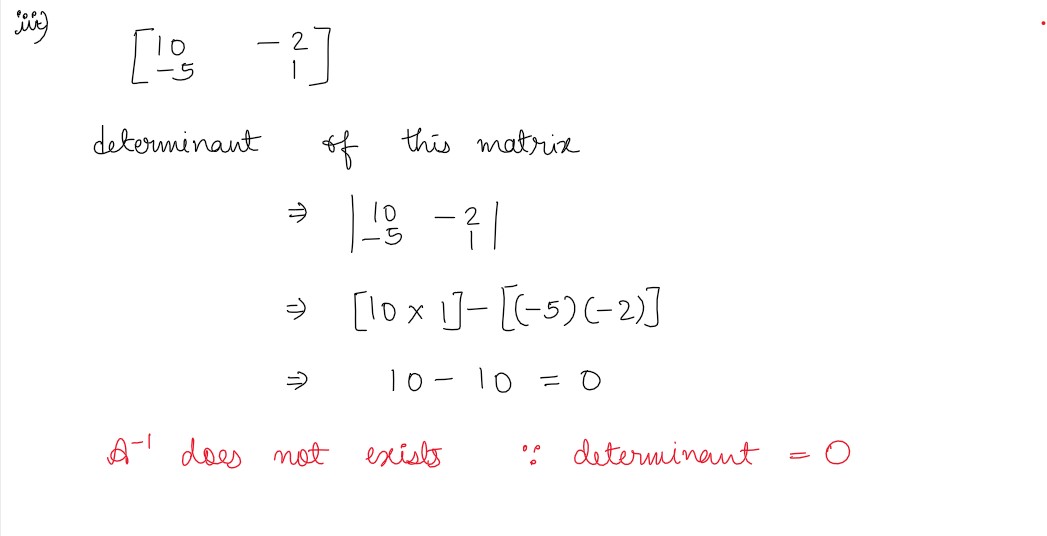 iii)
[10 -2
-5 1]
determinant of this matrix
⇒ |10 -2
-5 1|
⇒ [10 × 1] - [(-5)(-2)]
⇒ 10 - 10 = 0
A⁻¹ does not exists ∵ determinant = 0